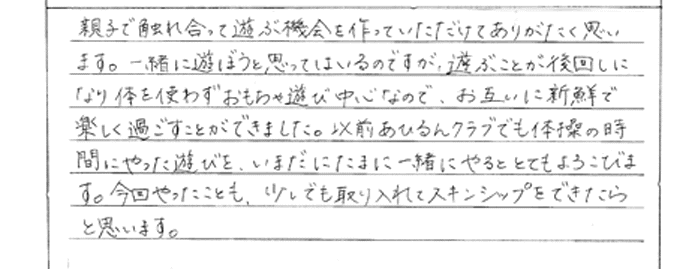 親子で触れ合って遊ぶ機会を作っていただけてありがたく思い
ます。一緒に遊ぼうと思ってはいるのですが、遊ぶことが後回しに
なり体を使わずおもちゃ遊び中心なので、お互いに新鮮で
楽しく過ごすことができました。以前あひるんクラブでも体操の時
間にやった遊びを、いまだにたまに一緒にやるととてもよろこびま
す。今回やったことも、少しでも取り入れてスキンシップをできたら
と思います。